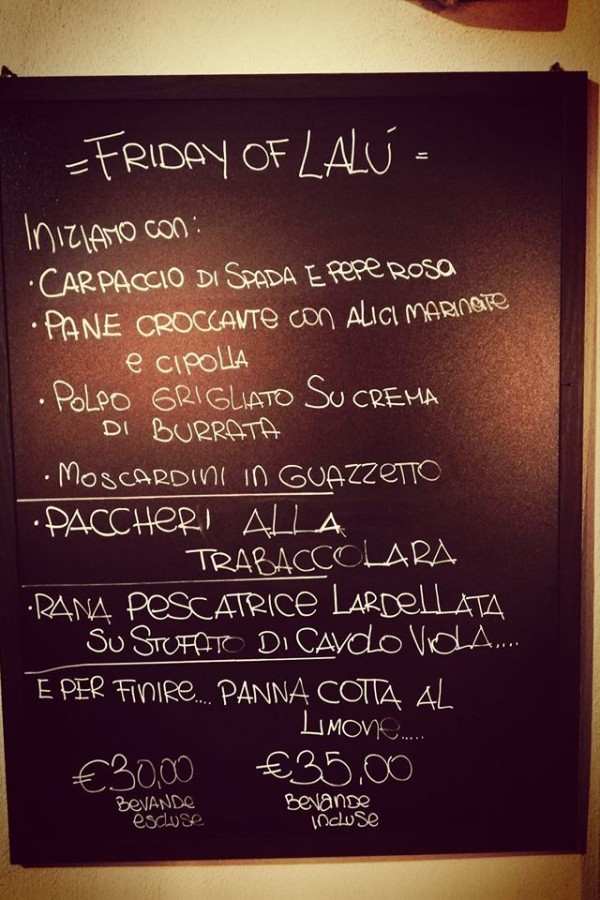 = FRIDAY OF LALÚ =
INIZIAMO CON:
· CARPACCIO DI SPADA E PEPE ROSA
· PANE CROCCANTE CON ALICI MARINATE
E CIPOLLA
· POLPO GRIGLIATO SU CREMA
DI BURRATA
· MOSCARDINI IN GUAZZETTO
· PACCHERI ALLA
TRABACCOLARA
· RANA PESCATRICE LARDELLATA
SU STUFATO DI CAVOLO VIOLA....
E PER FINIRE.... PANNA COTTA AL
LIMONE.....
€30,00 €35,00
BEVANDE BEVANDE
ESCLUSE INCLUSE